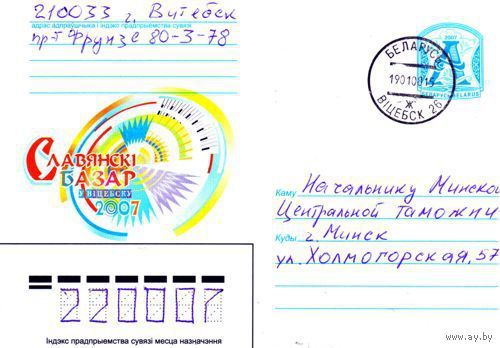 210033 г. Витебск
адрас адпраўшчыка і індэкс прадпрыемства сувязі
пр-т Фрунзе 80-3-78
2007
БЕЛАРУСЬ BELARUS
БЕЛАРУСЬ
ВІЦЕБСК 26
Ж
СЛАВЯНСКІ
БАЗАР
У ВІЦЕБСКУ
2007
Каму Начальнику Минской
Центральной Таможни
Куды г. Минск
ул. Холмогорская, 57
220007
Індэкс прадпрыемства сувязі месцаназначэння
www.ay.by